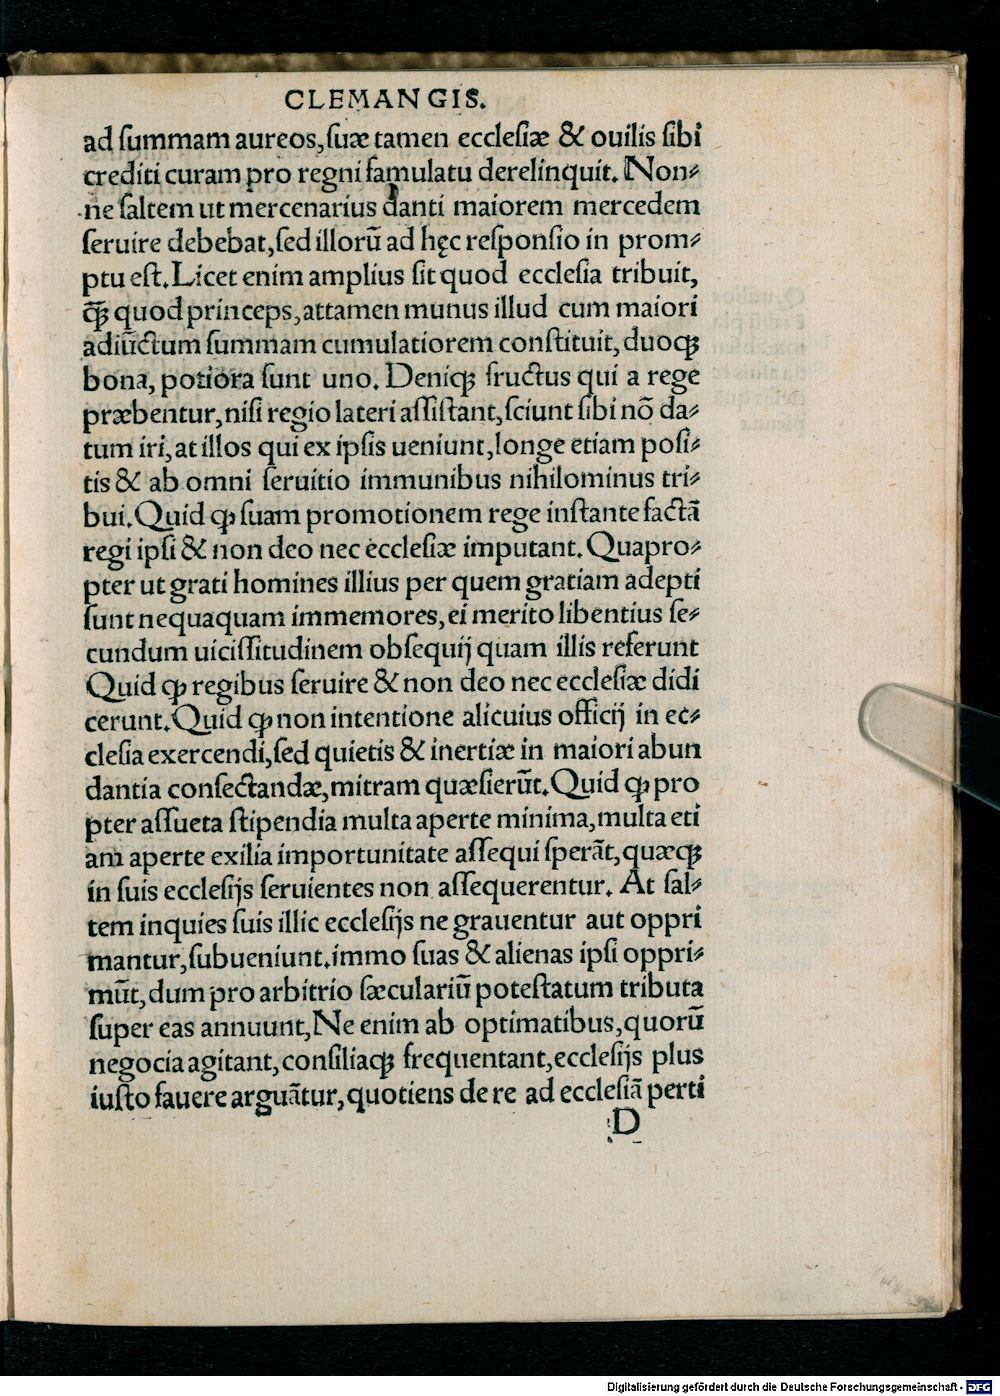 CLEMANGIS.
ad ſummam aureos, ſuæ tamen eccleſiæ & ouilis ſibi
crediti curam pro regni famulatu derelinquit. Non⸗
ne ſaltem ut mercenarius danti maiorem mercedem
ſeruire debebat, ſed illorū ad hęc reſponſio in prom⸗
ptu eſt. Licet enim amplius ſit quod eccleſia tribuit,
q̄ꝫ quod princeps, attamen munus illud cum maiori
adiūctum ſummam cumulatiorem conſtituit, duoqꝫ
bona, potiora ſunt uno. Deniqꝫ fructus qui a rege
præbentur, niſi regio lateri aſſiſtant, ſciunt ſibi nō da⸗
tum iri, at illos qui ex ipſis ueniunt, longe etiam poſi⸗
tis & ab omni ſeruitio immunibus nihilominus tri⸗
bui. Quid ꝙ ſuam promotionem rege inſtante factā
regi ipſi & non deo nec eccleſiæ imputant. Quapro⸗
pter ut grati homines illius per quem gratiam adepti
ſunt nequaquam immemores, ei merito libentius ſe⸗
cundum uiciſſitudinem obſequij quam illis referunt
Quid ꝙ regibus ſeruire & non deo nec eccleſiæ didi
cerunt. Quid ꝙ non intentione alicuius officij in ec⸗
cleſia exercendi, ſed quietis & inertiæ in maiori abun
dantia conſectandæ, mitram quæſierūt. Quid ꝙ pro
pter aſſueta ſtipendia multa aperte minima, multa eti
am aperte exilia importunitate aſſequi ſperāt, quæqꝫ
in ſuis eccleſijs ſeruientes non aſſequerentur. At ſal⸗
tem inquies ſuis illic eccleſijs ne grauentur aut oppri
mantur, ſubueniunt. immo ſuas & alienas ipſi oppri⸗
mūt, dum pro arbitrio ſæculariū poteſtatum tributa
ſuper eas annuunt, Ne enim ab optimatibus, quorū
negocia agitant, conſiliaqꝫ frequentant, eccleſijs plus
iuſto fauere arguātur, quotiens de re ad eccleſiā perti
D
Digitalisierung gefördert durch die Deutsche Forschungsgemeinschaft - DFG